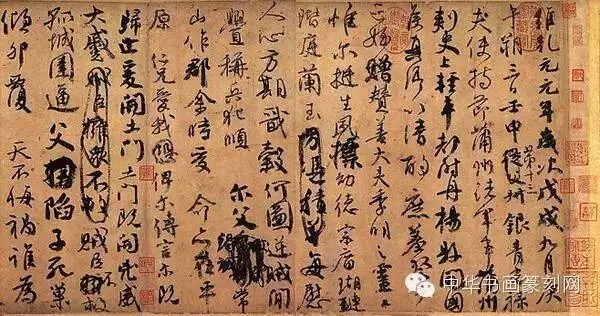 維乾元元年歲次戊戌九月庚
午朔三日壬申第十三從父銀青光祿
夫使持節蒲州諸軍事蒲州
刺史上輕車都尉丹楊縣開國
侯真卿以清酌庶羞祭于
亡姪贈贊善大夫季明之靈曰
惟爾挺生夙標幼德宗廟瑚璉
階庭蘭玉方憑積善每慰
人心方期戩穀何圖逆賊閒
釁稱兵犯順爾父竭誠常
山作郡余時受命亦在平
原仁兄愛我俾爾傳言爾既
歸止爰開土門土門既開凶威
大蹙賊臣擁眾不救賊臣不救
孤城圍逼父陷子死巢
傾卵覆天不悔禍誰為
中华书画篆刻网